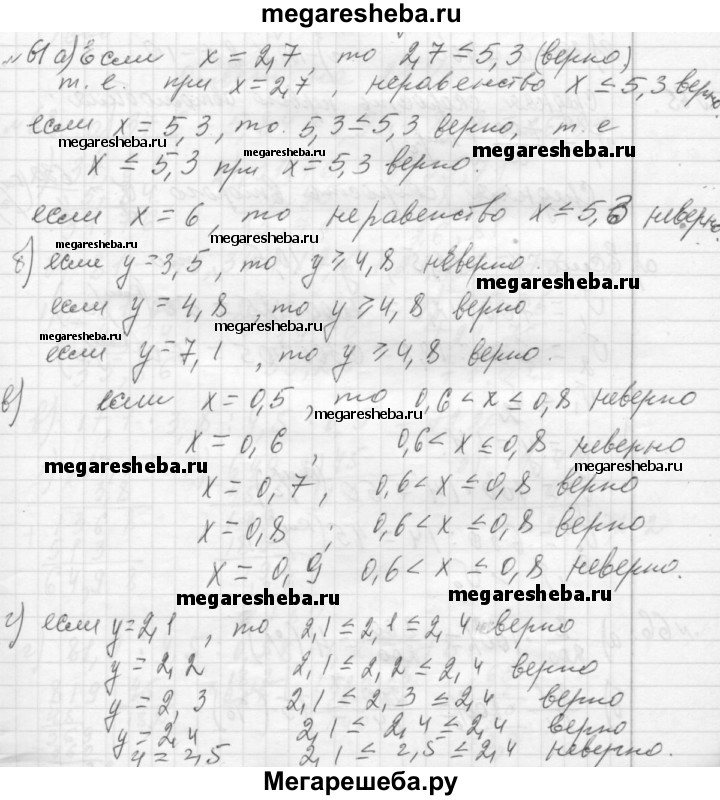 megaresheba.ru
№61 а) Если x = 2,7, то 2,7 ≤ 5,3 (верно)
т.е. при x = 2,7, неравенство x ≤ 5,3 верно.
если x = 5,3, то. 5,3 ≤ 5,3 верно, т.е
megaresheba.ru megaresheba.ru megaresheba.ru
x ≤ 5,3 при x = 5,3 верно.
если x = 6, то неравенство x ≤ 5,3 неверно
megaresheba.ru
б) если y = 3,5, то y ⩾ 4,8 неверно.
megaresheba.ru
если y = 4,8, то y ⩾ 4,8 верно
megaresheba.ru
megaresheba.ru
если y = 7,1, то y ⩾ 4,8 верно.
в) если x = 0,5, то 0,6 < x ≤ 0,8 неверно
megaresheba.ru
x = 0,6, 0,6 < x ≤ 0,8 неверно
megaresheba.ru megaresheba.ru
x = 0,7, 0,6 < x ≤ 0,8 верно
x = 0,8; 0,6 < x ≤ 0,8 верно
x = 0,9 0,6 < x ≤ 0,8 неверно.
megaresheba.ru megaresheba.ru
г) если y = 2,1, то 2,1 ≤ 2,1 ≤ 2,4 верно
y = 2,2 2,1 ≤ 2,2 ≤ 2,4 верно
y = 2,3 2,1 ≤ 2,3 ≤ 2,4 верно
y = 2,4 2,1 ≤ 2,4 ≤ 2,4 верно
y = 2,5 2,1 ≤ 2,5 ≤ 2,4 неверно.
Мегарешеба.ру